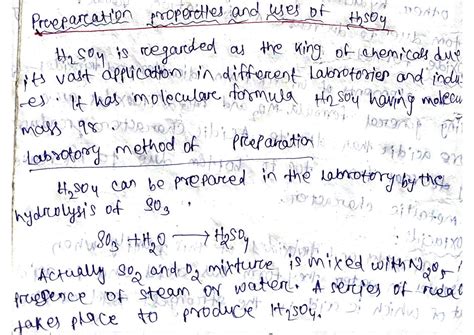 Preparcation properties and uses of H2SO4
H2SO4 is regarded as the king of chemicals due
its vast application in different labrotories and indu
es. It has moleculare formula H2SO4 having molecu
mass 98
Labrotory method of Preparation
H2SO4 can be prepared in the labrotory by the
hydrolysis of SO3.
SO3 + H2O → H2SO4
Actually SO2 and O2 mixture is mixed with N2O5
presence of steam or water. A series of reac
takes place to produce H2SO4.